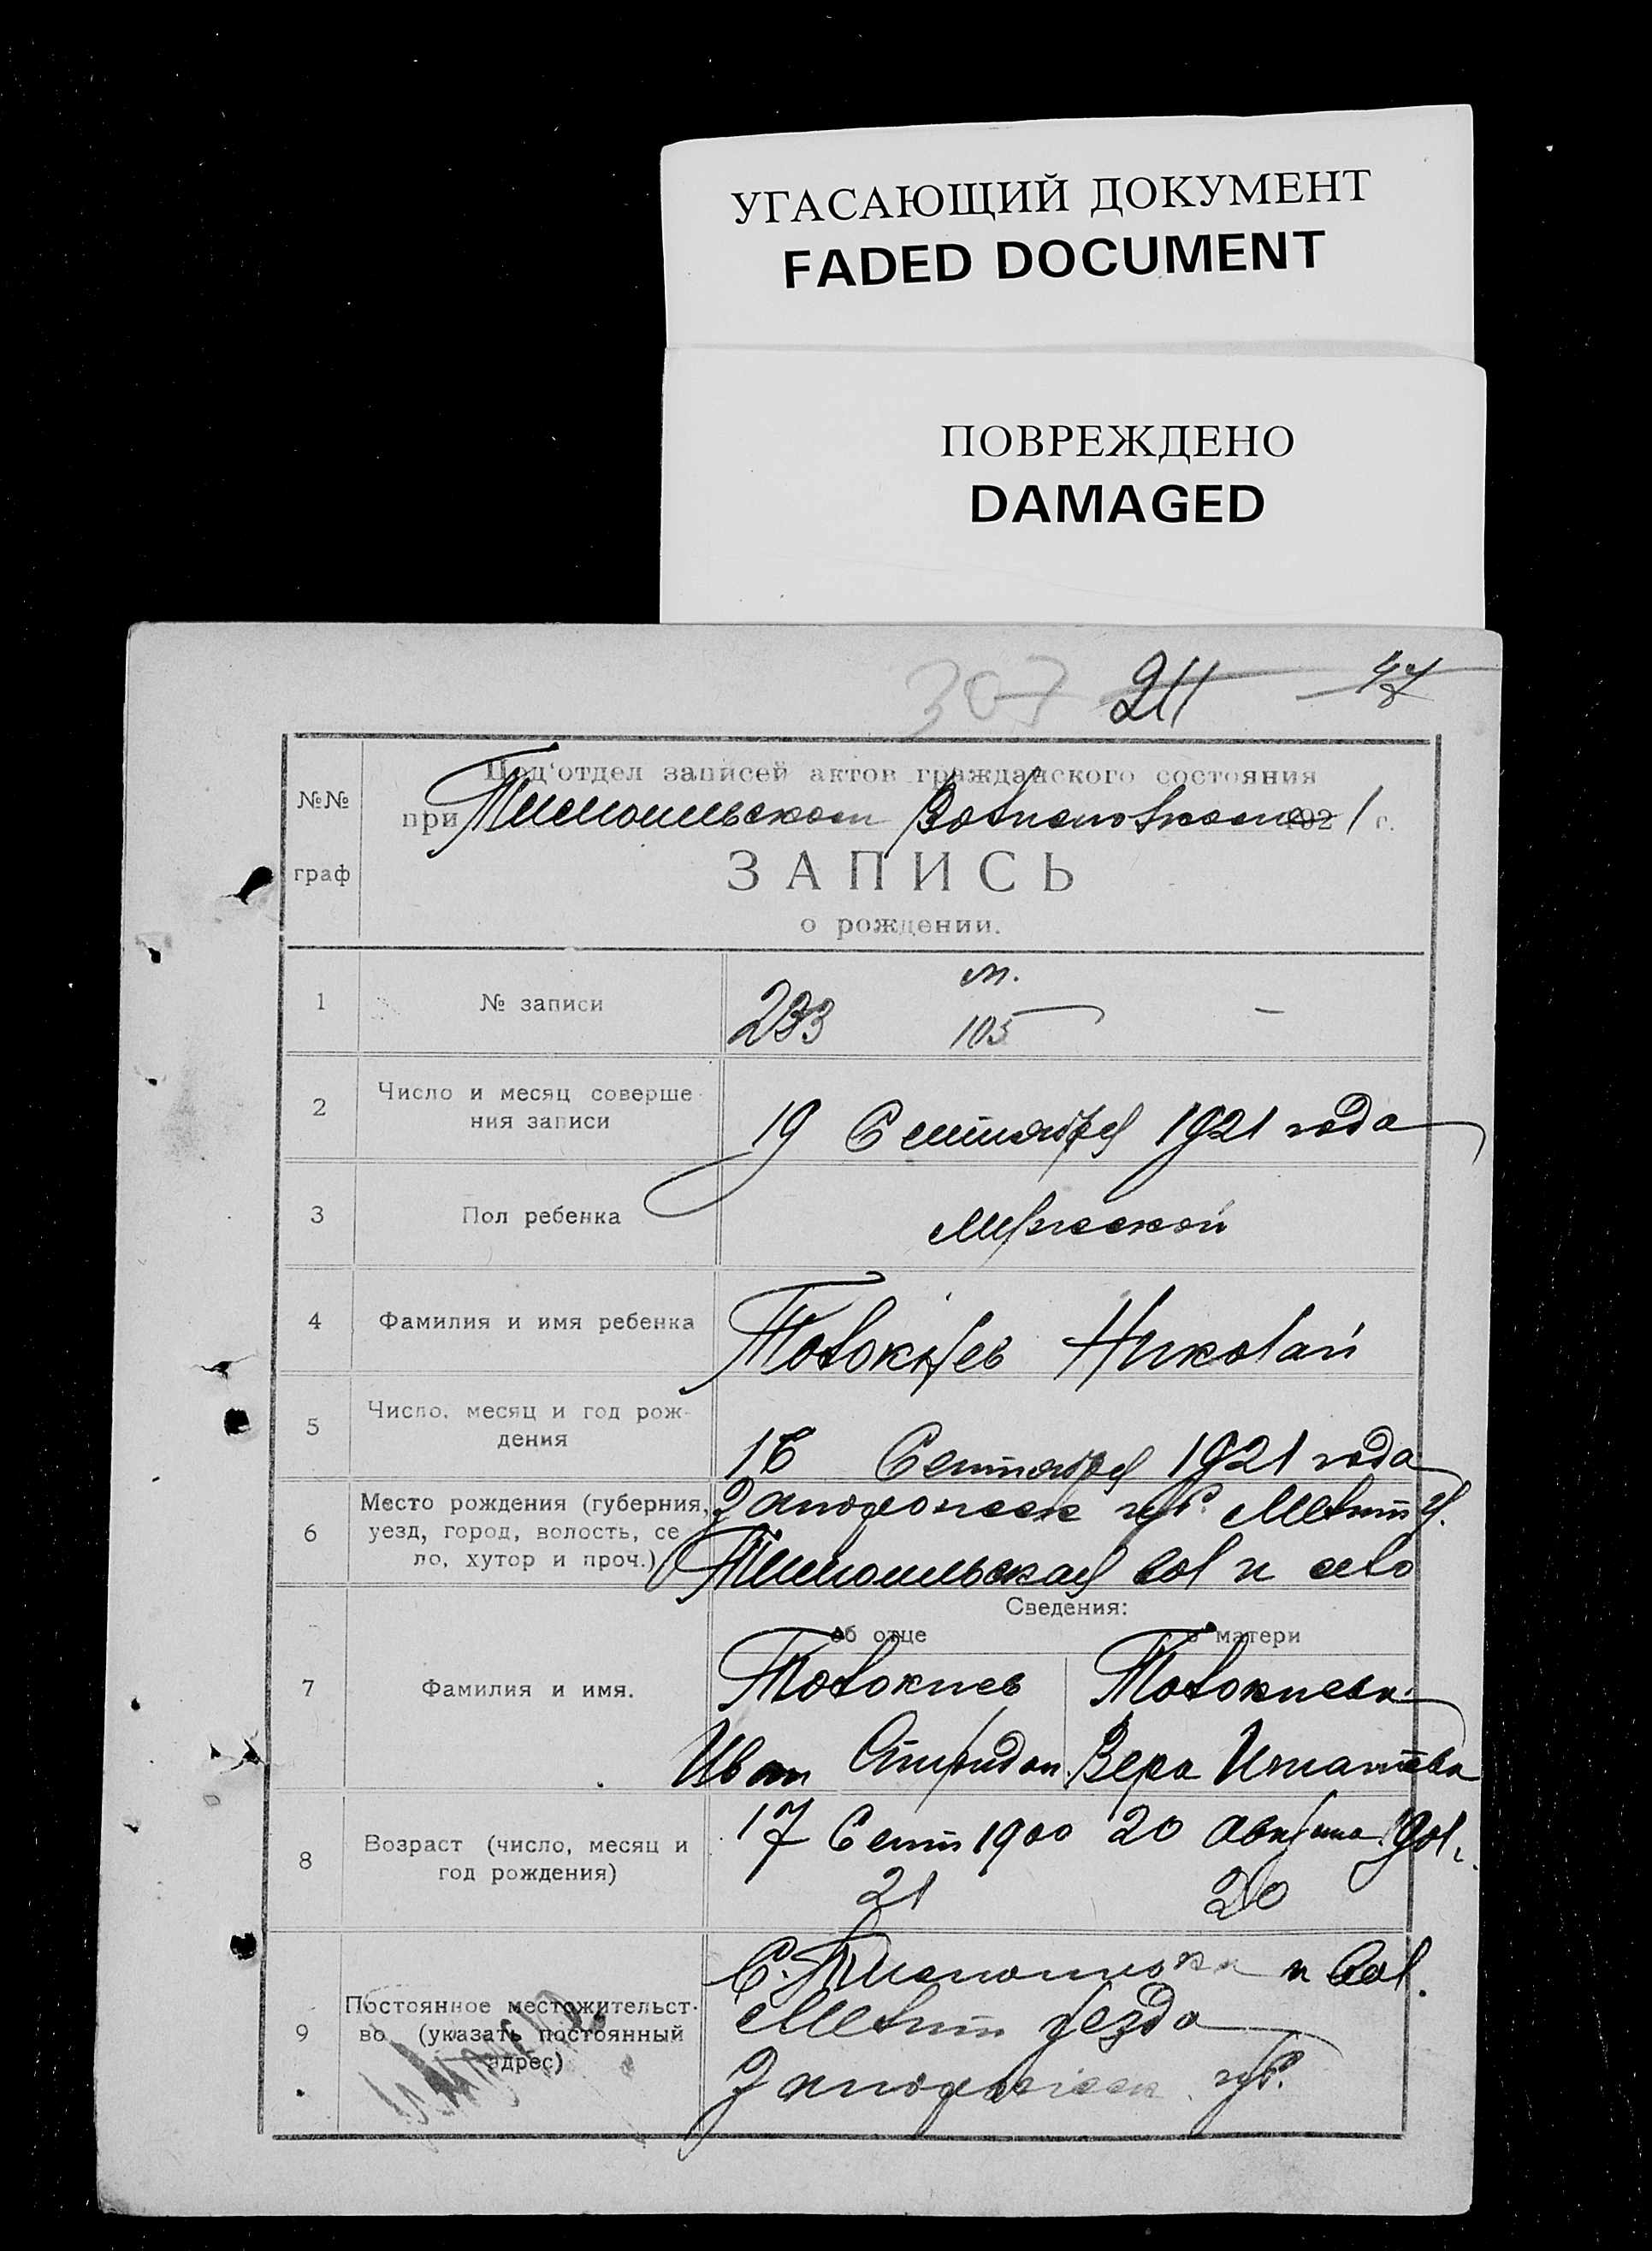 УГАСАЮЩИЙ ДОКУМЕНТ
FADED DOCUMENT
ПОВРЕЖДЕНО
DAMAGED
307 211 47
№№ граф
Под'отдел записей актов гражданского состояния
при 1921 г.
ЗАПИСЬ
о рождении.
1 № записи 233 м. 105 —
2 Число и месяц соверше-
ния записи 19 Сентября 1921 года
3 Пол ребенка мужской
4 Фамилия и имя ребенка Николай
5 Число, месяц и год рож-
дения 16 Сентября 1921 года
6 Место рождения (губерния,
уезд, город, волость, се
ло, хутор и проч.)
Запорожск губ. Мелит у.
вол и село
Сведения:
об отце о матери
7 Фамилия и имя. Толокнев Толокнева
Иван Спиридон. Вера Игнатева
8 Возраст (число, месяц и
год рождения) 17 Сент 1900 20 Августа 1901 г.
21 20
9 Постоянное местожительст-
во (указать постоянный
адрес)
и вол.
Мелит уезда
Запорожск. губ.